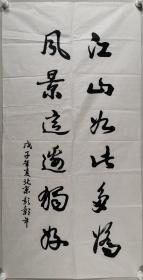 江山如此多娇
风景这边独好
戊子年夏北京彭彰年